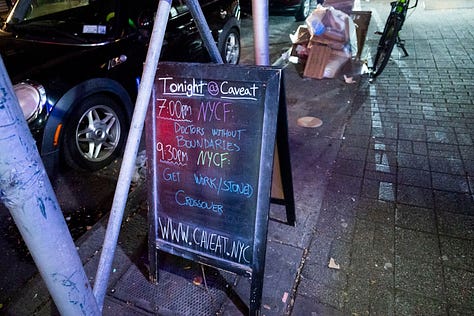 Tonight @ Caveat
7:00pm NYCF:
Doctors without
Boundaries
9:30pm NYCF:
Get Work/Stoned
Crossover
WWW.CAVEAT.NYC